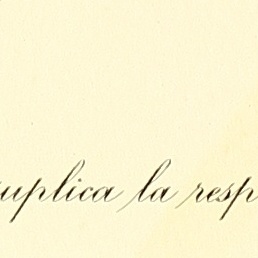 suplica la resp